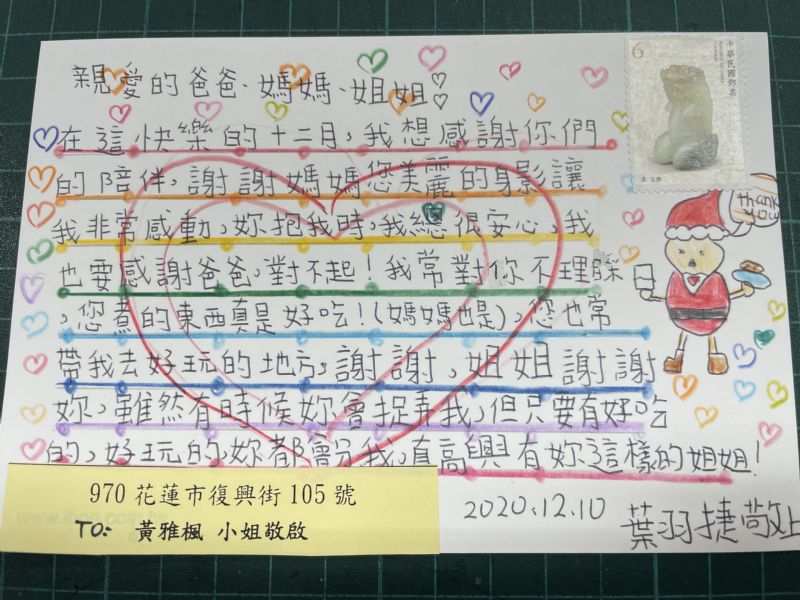 親愛的爸爸、媽媽、姐姐:
在這快樂的十二月,我想感謝你們
的陪伴,謝謝媽媽您美麗的身影讓
我非常感動,妳抱我時,我總很安心,我
也要感謝爸爸,對不起!我常對你不理睬
,您煮的東西真是好吃!(媽媽也是),您也常
帶我去好玩的地方,謝謝,姐姐謝謝
妳,雖然有時候妳會捉弄我,但只要有好吃
的,好玩的,妳都會分我,真高興有妳這樣的姐姐!
2020.12.10
葉羽捷敬上
970 花蓮市復興街105號
TO: 黃雅楓 小姐敬啟
6
中華民國郵票
REPUBLIC OF CHINA
thank you